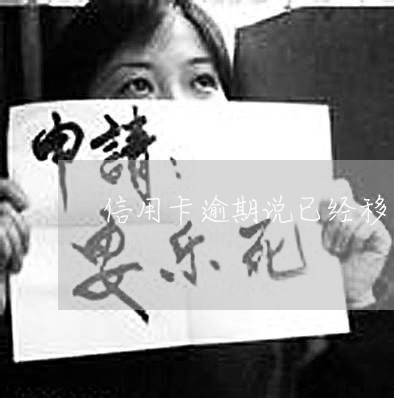 申請：
信用卡逾期说已经移
安乐死